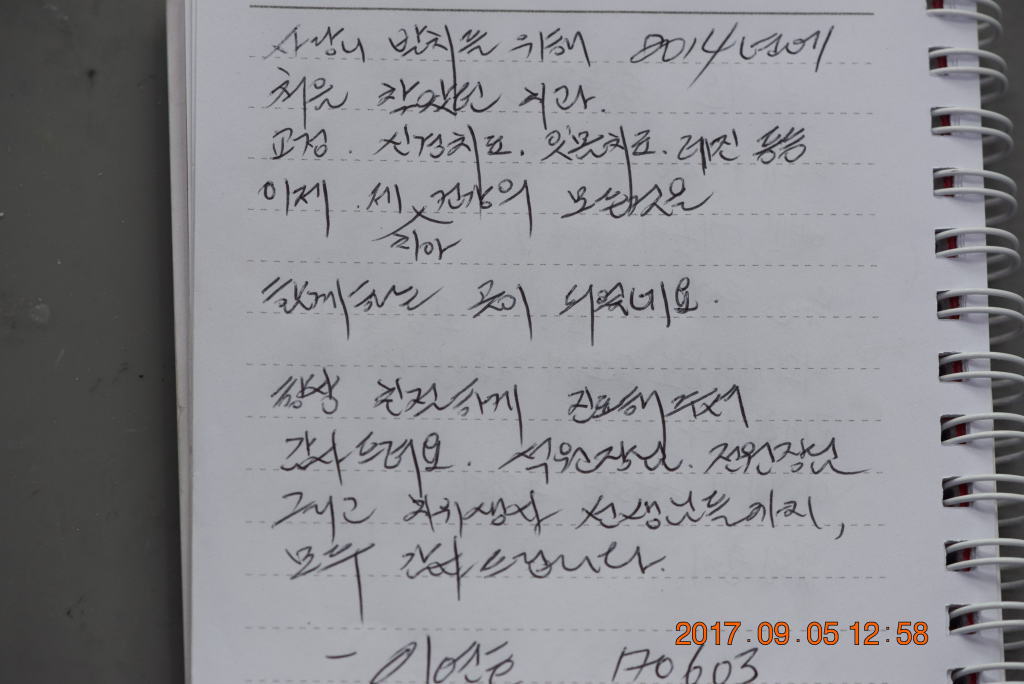 사랑니 발치를 위해 2014년에
처음 찾았던 치과.
교정. 신경치료. 잇몸치료. 레진 등등
이제 제 치아 건강의 모든것을
함께하는 곳이 되었네요.
항상 친절하게 진료해주셔
감사드려요. 석원장님. 전원장님
그리고 치위생사 선생님들까지,
모두 감사드립니다.
- 170603
2017.09.05 12:58